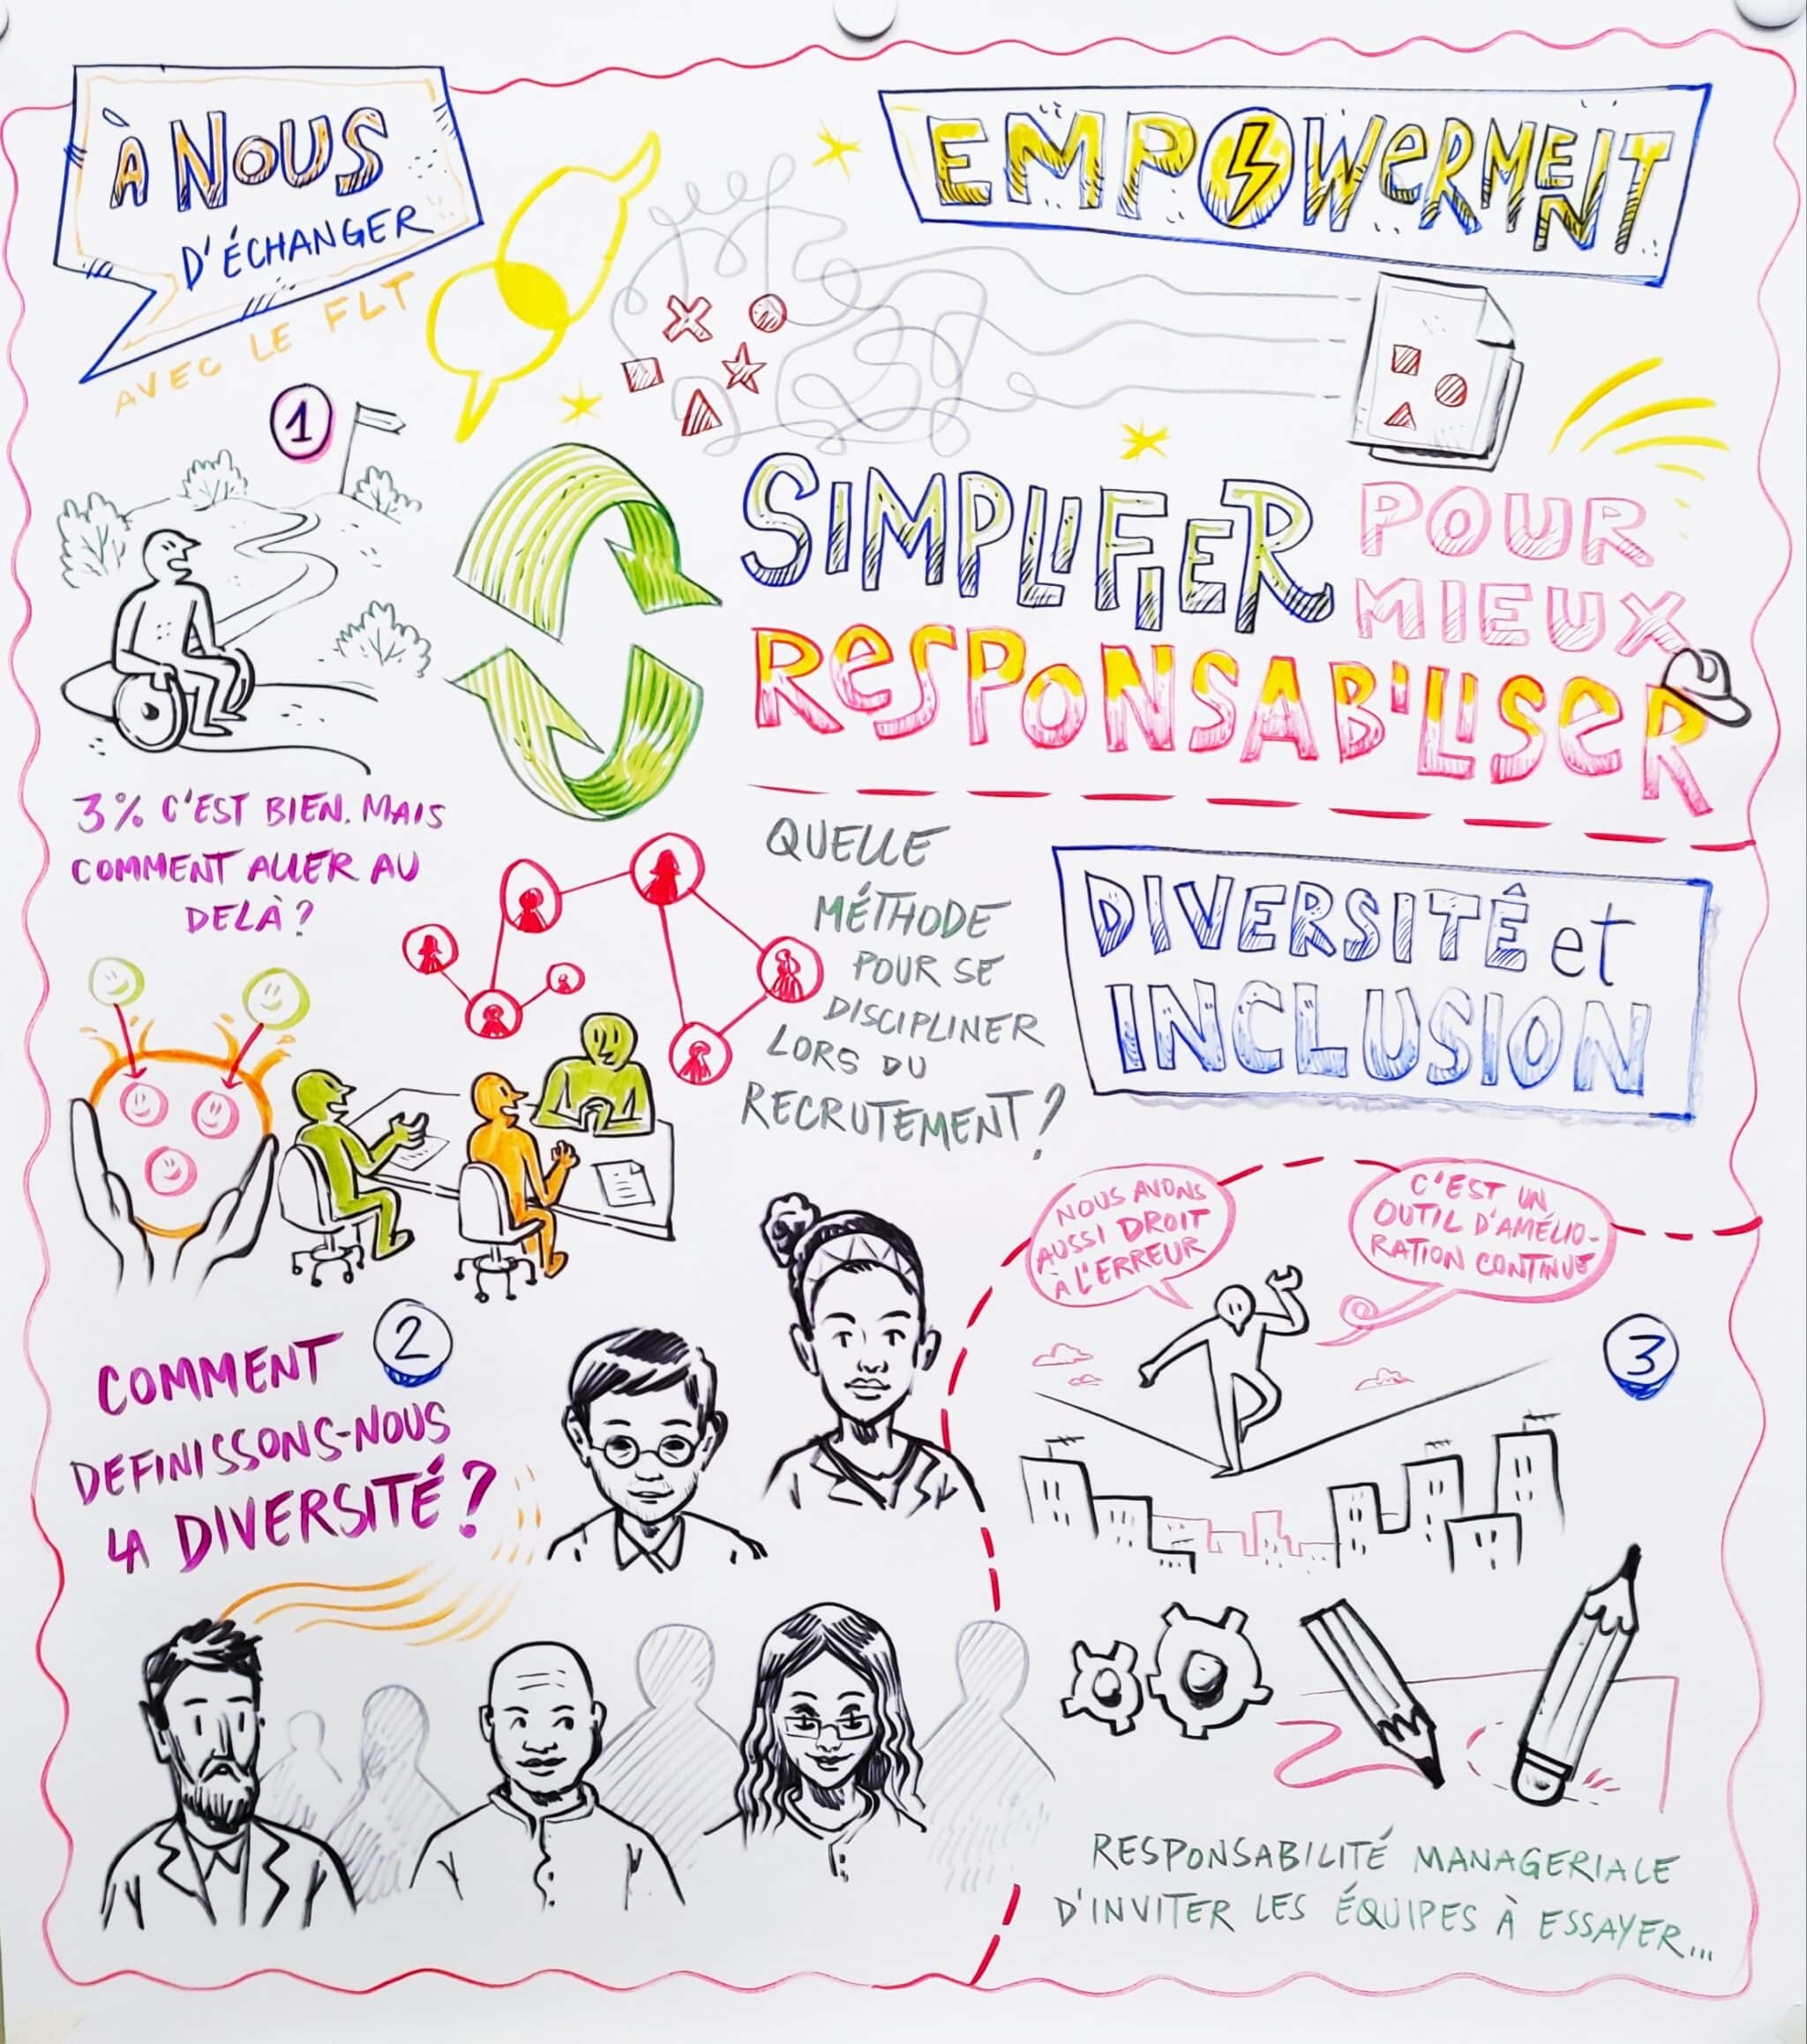 À NOUS
D'ÉCHANGER
AVEC LE FLT
EMPOWERMENT
SIMPLIFIER
POUR
MIEUX
RESPONSABILISER
1
3% C'EST BIEN. MAIS
COMMENT ALLER AU
DELÀ?
QUELLE
MÉTHODE
POUR SE
DISCIPLINER
LORS DU
RECRUTEMENT?
DIVERSITÉ et
INCLUSION
2
COMMENT
DEFINISSONS-NOUS
LA DIVERSITÉ?
NOUS AVONS
AUSSI DROIT
À L'ERREUR
C'EST UN
OUTIL D'AMÉLIO-
RATION CONTINUE
3
RESPONSABILITÉ MANAGERIALE
D'INVITER LES ÉQUIPES À ESSAYER...